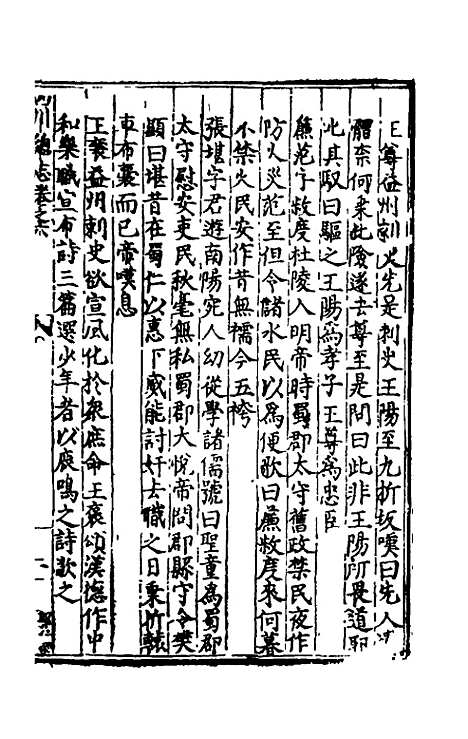 王尊益州刺史先是刺史王陽至九折坂嘆曰先人
體柰何乗此險遂去尊至是問曰此非王陽所畏道耶
叱其馭曰驅之王陽爲孝子王尊爲忠臣
廉范字叔度杜陵人明帝時蜀郡太守舊政禁民夜作
防火災范至但令儲水民以爲便歌曰廉叔度來何暮
不禁火民安作昔無襦今五袴
張堪字君遊南陽宛人幼從學諸儒號曰聖童爲蜀郡
太守慰安吏民秋毫無私蜀郡大悅帝問郡縣守令樊
顯曰堪昔在蜀仁以惠下威能討奸去職之日乗折轅
車布囊而已帝嘆息
王襄益州刺史欲宣風化於衆庶命王褒頌漢德作中
和樂職宣布詩三篇選少年者以鹿鳴之詩歌之
川總志卷之